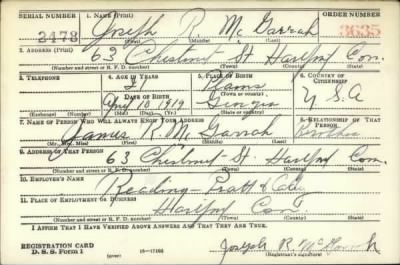 SERIAL NUMBER 1. NAME (Print) ORDER NUMBER
2478 Joseph R. McGarrah 3635
(First) (Middle) (Last)
2. ADDRESS (Print)
63 Chestnut St Hartford Conn.
(Number and street or R. F. D. number) (Town) (County) (State)
3. TELEPHONE 4. AGE IN YEARS 5. PLACE OF BIRTH 6. COUNTRY OF CITIZENSHIP
21 Plains
DATE OF BIRTH (Town or county)
10 1919 Georgia U. S. A
(Exchange) (Number) (Mo.) (Day) (Yr.) (State or country)
7. NAME OF PERSON WHO WILL ALWAYS KNOW YOUR ADDRESS 8. RELATIONSHIP OF THAT PERSON
James R. McGarrah Brother
(Mr., Mrs., Miss) (First) (Middle) (Last)
9. ADDRESS OF THAT PERSON
63 Chestnut St Hartford Conn.
(Number and street or R. F. D. number) (Town) (County) (State)
10. EMPLOYER'S NAME
Reading-Pratt & Cady
11. PLACE OF EMPLOYMENT OR BUSINESS
Hartford Conn.
(Number and street or R. F. D. number) (Town) (County) (State)
I AFFIRM THAT I HAVE VERIFIED ABOVE ANSWERS AND THAT THEY ARE TRUE.
REGISTRATION CARD
D. S. S. Form 1 (over) Joseph R. McGarrah
(Registrant's signature)